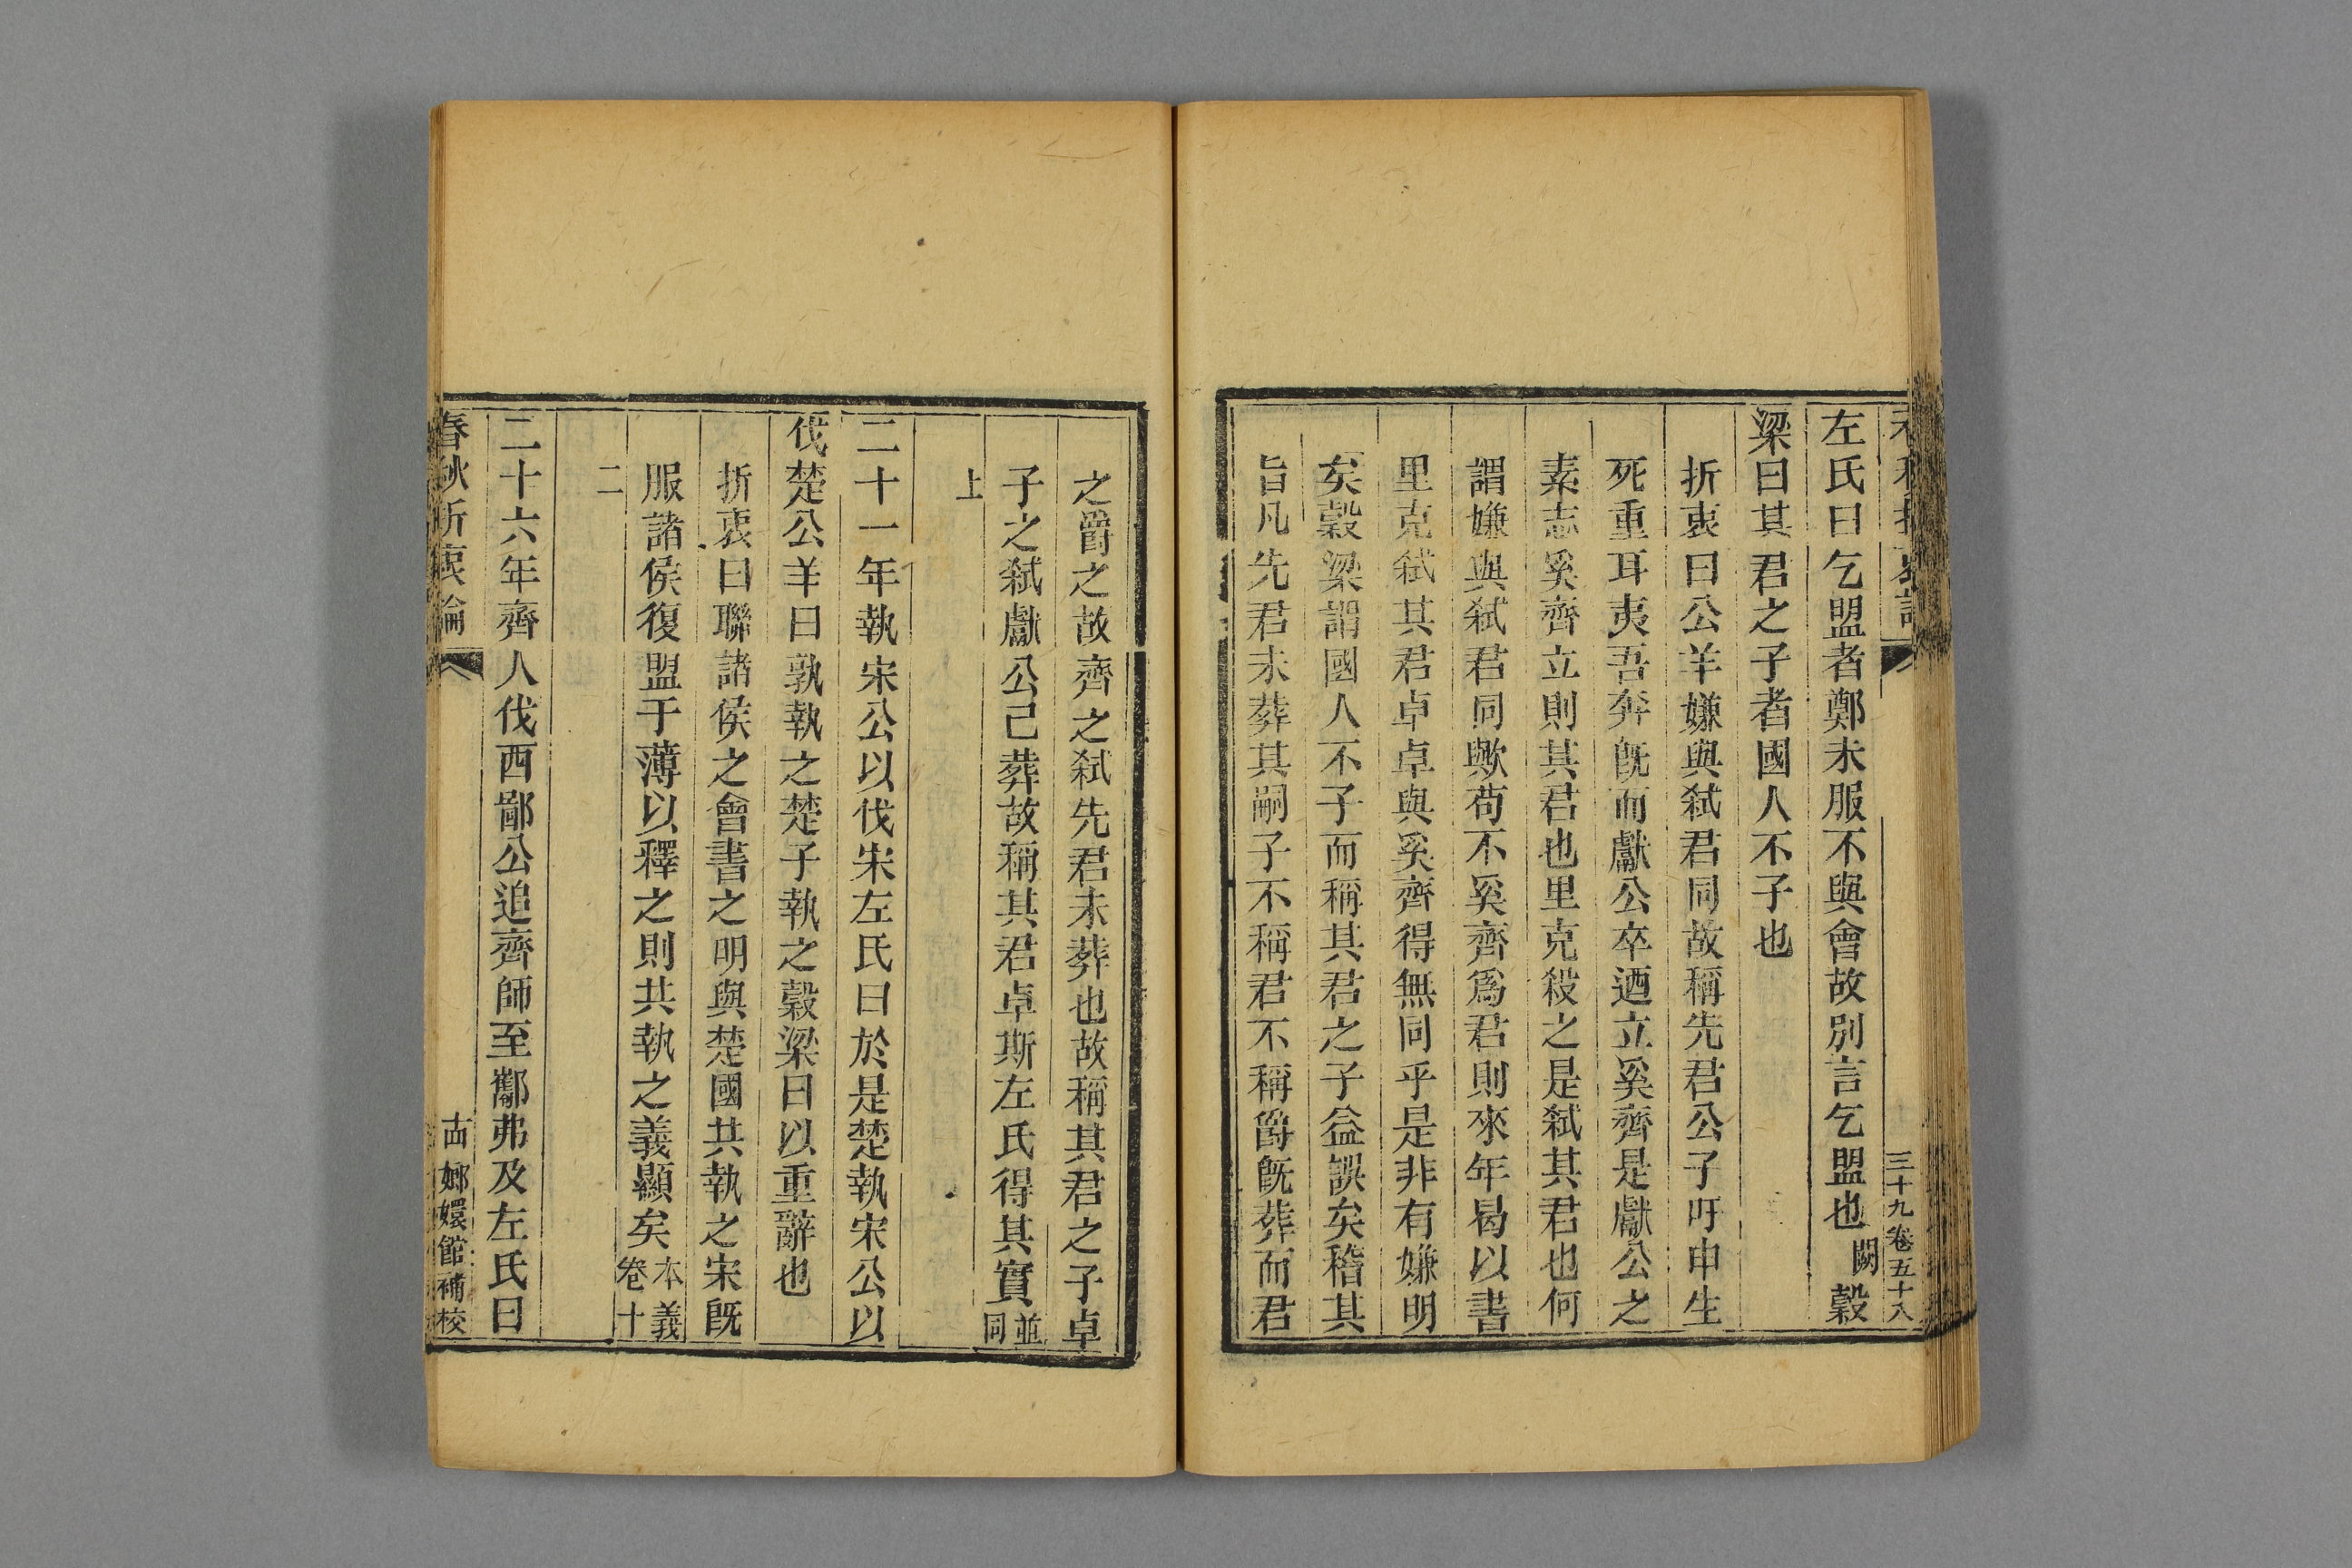 三十九卷五十八
左氏曰乞盟者鄭未服不與會故別言乞盟也闕穀
梁曰其君之子者國人不子也
折衷曰公羊嫌與弒君同故稱先君公子吁申生
死重耳夷吾奔旣而獻公卒迺立奚齊是獻公之
素志奚齊立則其君也里克殺之是弒其君也何
謂嫌與弒君同歟苟不奚齊爲君則來年曷以書
里克弒其君卓卓與奚齊得無同乎是非有嫌明
矣穀梁謂國人不子而稱其君之子益誤矣稽其
旨凡先君未葬其嗣子不稱君不稱爵旣葬而君
之爵之故齊之弒先君未葬也故稱其君之子卓
子之弒獻公已葬故稱其君卓斯左氏得其實並同
上
二十一年執宋公以伐宋左氏曰於是楚執宋公以
伐楚公羊曰孰執之楚子執之穀梁曰以重辭也
折衷曰聯諸侯之會書之明與楚國共執之宋旣
服諸侯復盟于薄以釋之則共執之義顯矣本義卷十
二
二十六年齊人伐西鄙公追齊師至酅弗及左氏曰
春秋折衷論
古嫏嬛館補校